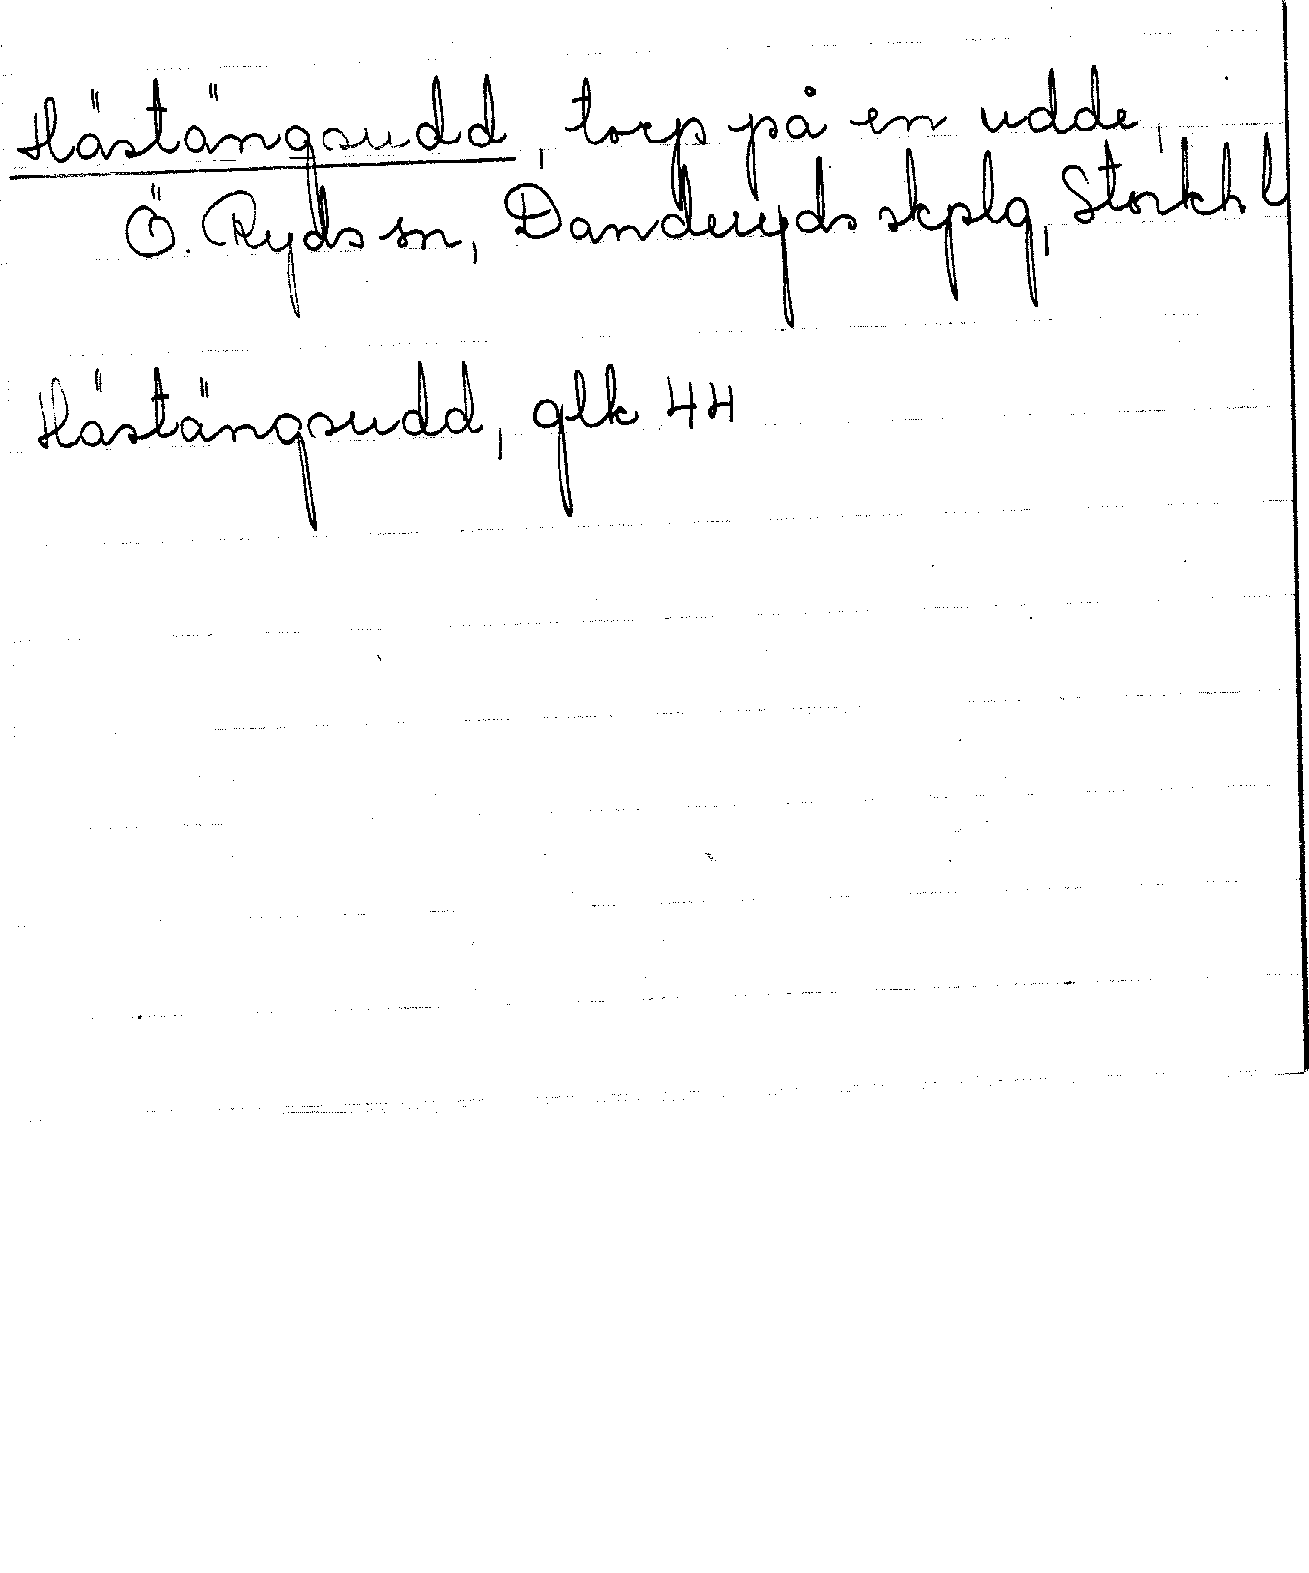 Hästängsudd, torp på en udde,
Ö. Ryds sn, Danderyds skplg, Stockh. l
Hästängsudd, glk 44